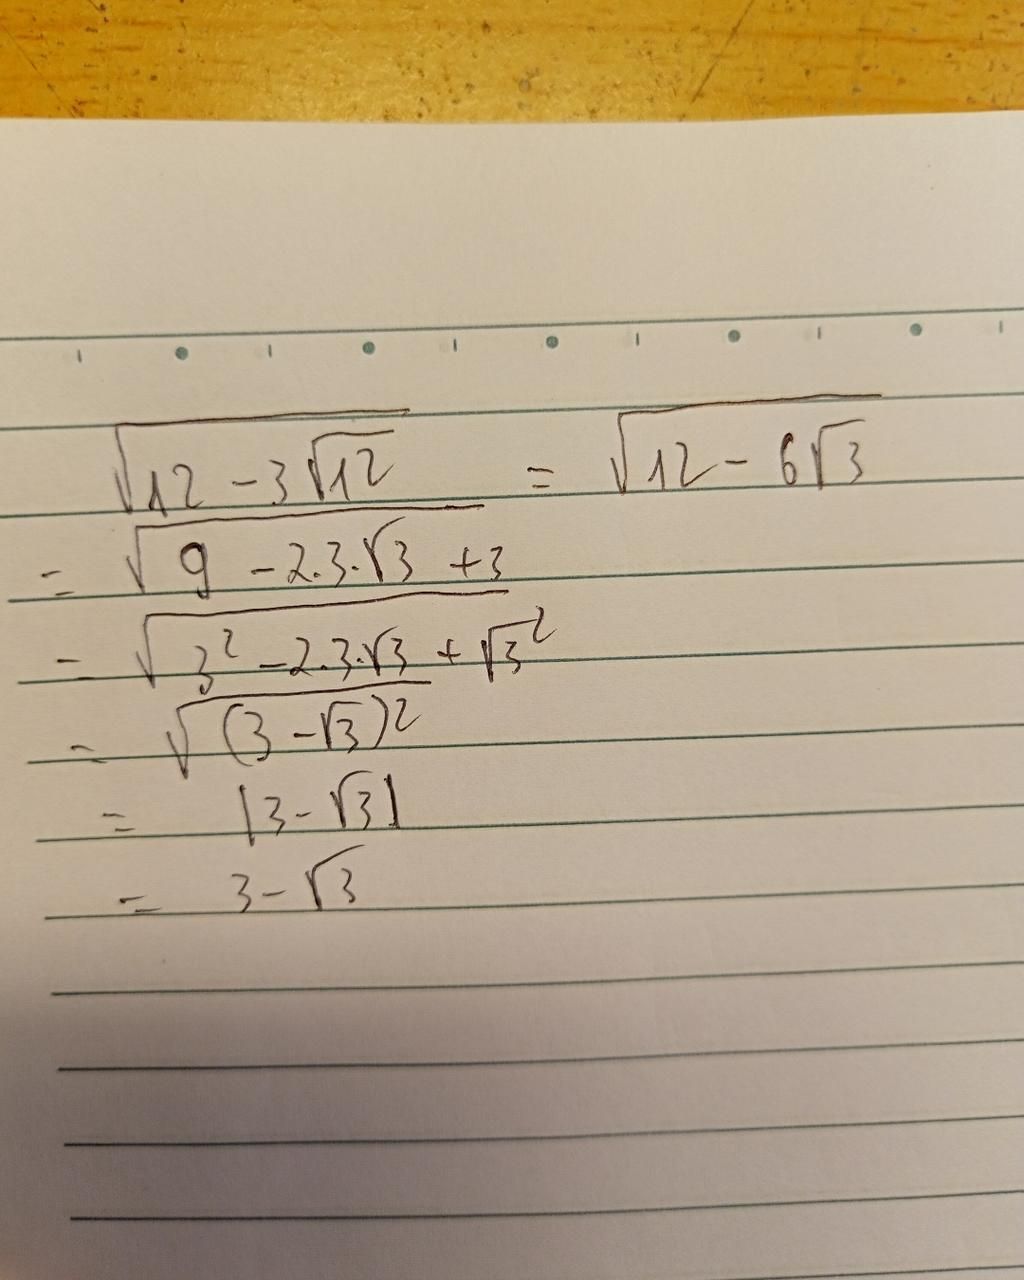 √(12 - 3√12) = √(12 - 6√3)
= √(9 - 2.3.√3 + 3)
= √(3² - 2.3.√3 + √3²)
= √((3 - √3)²)
= |3 - √3|
= 3 - √3